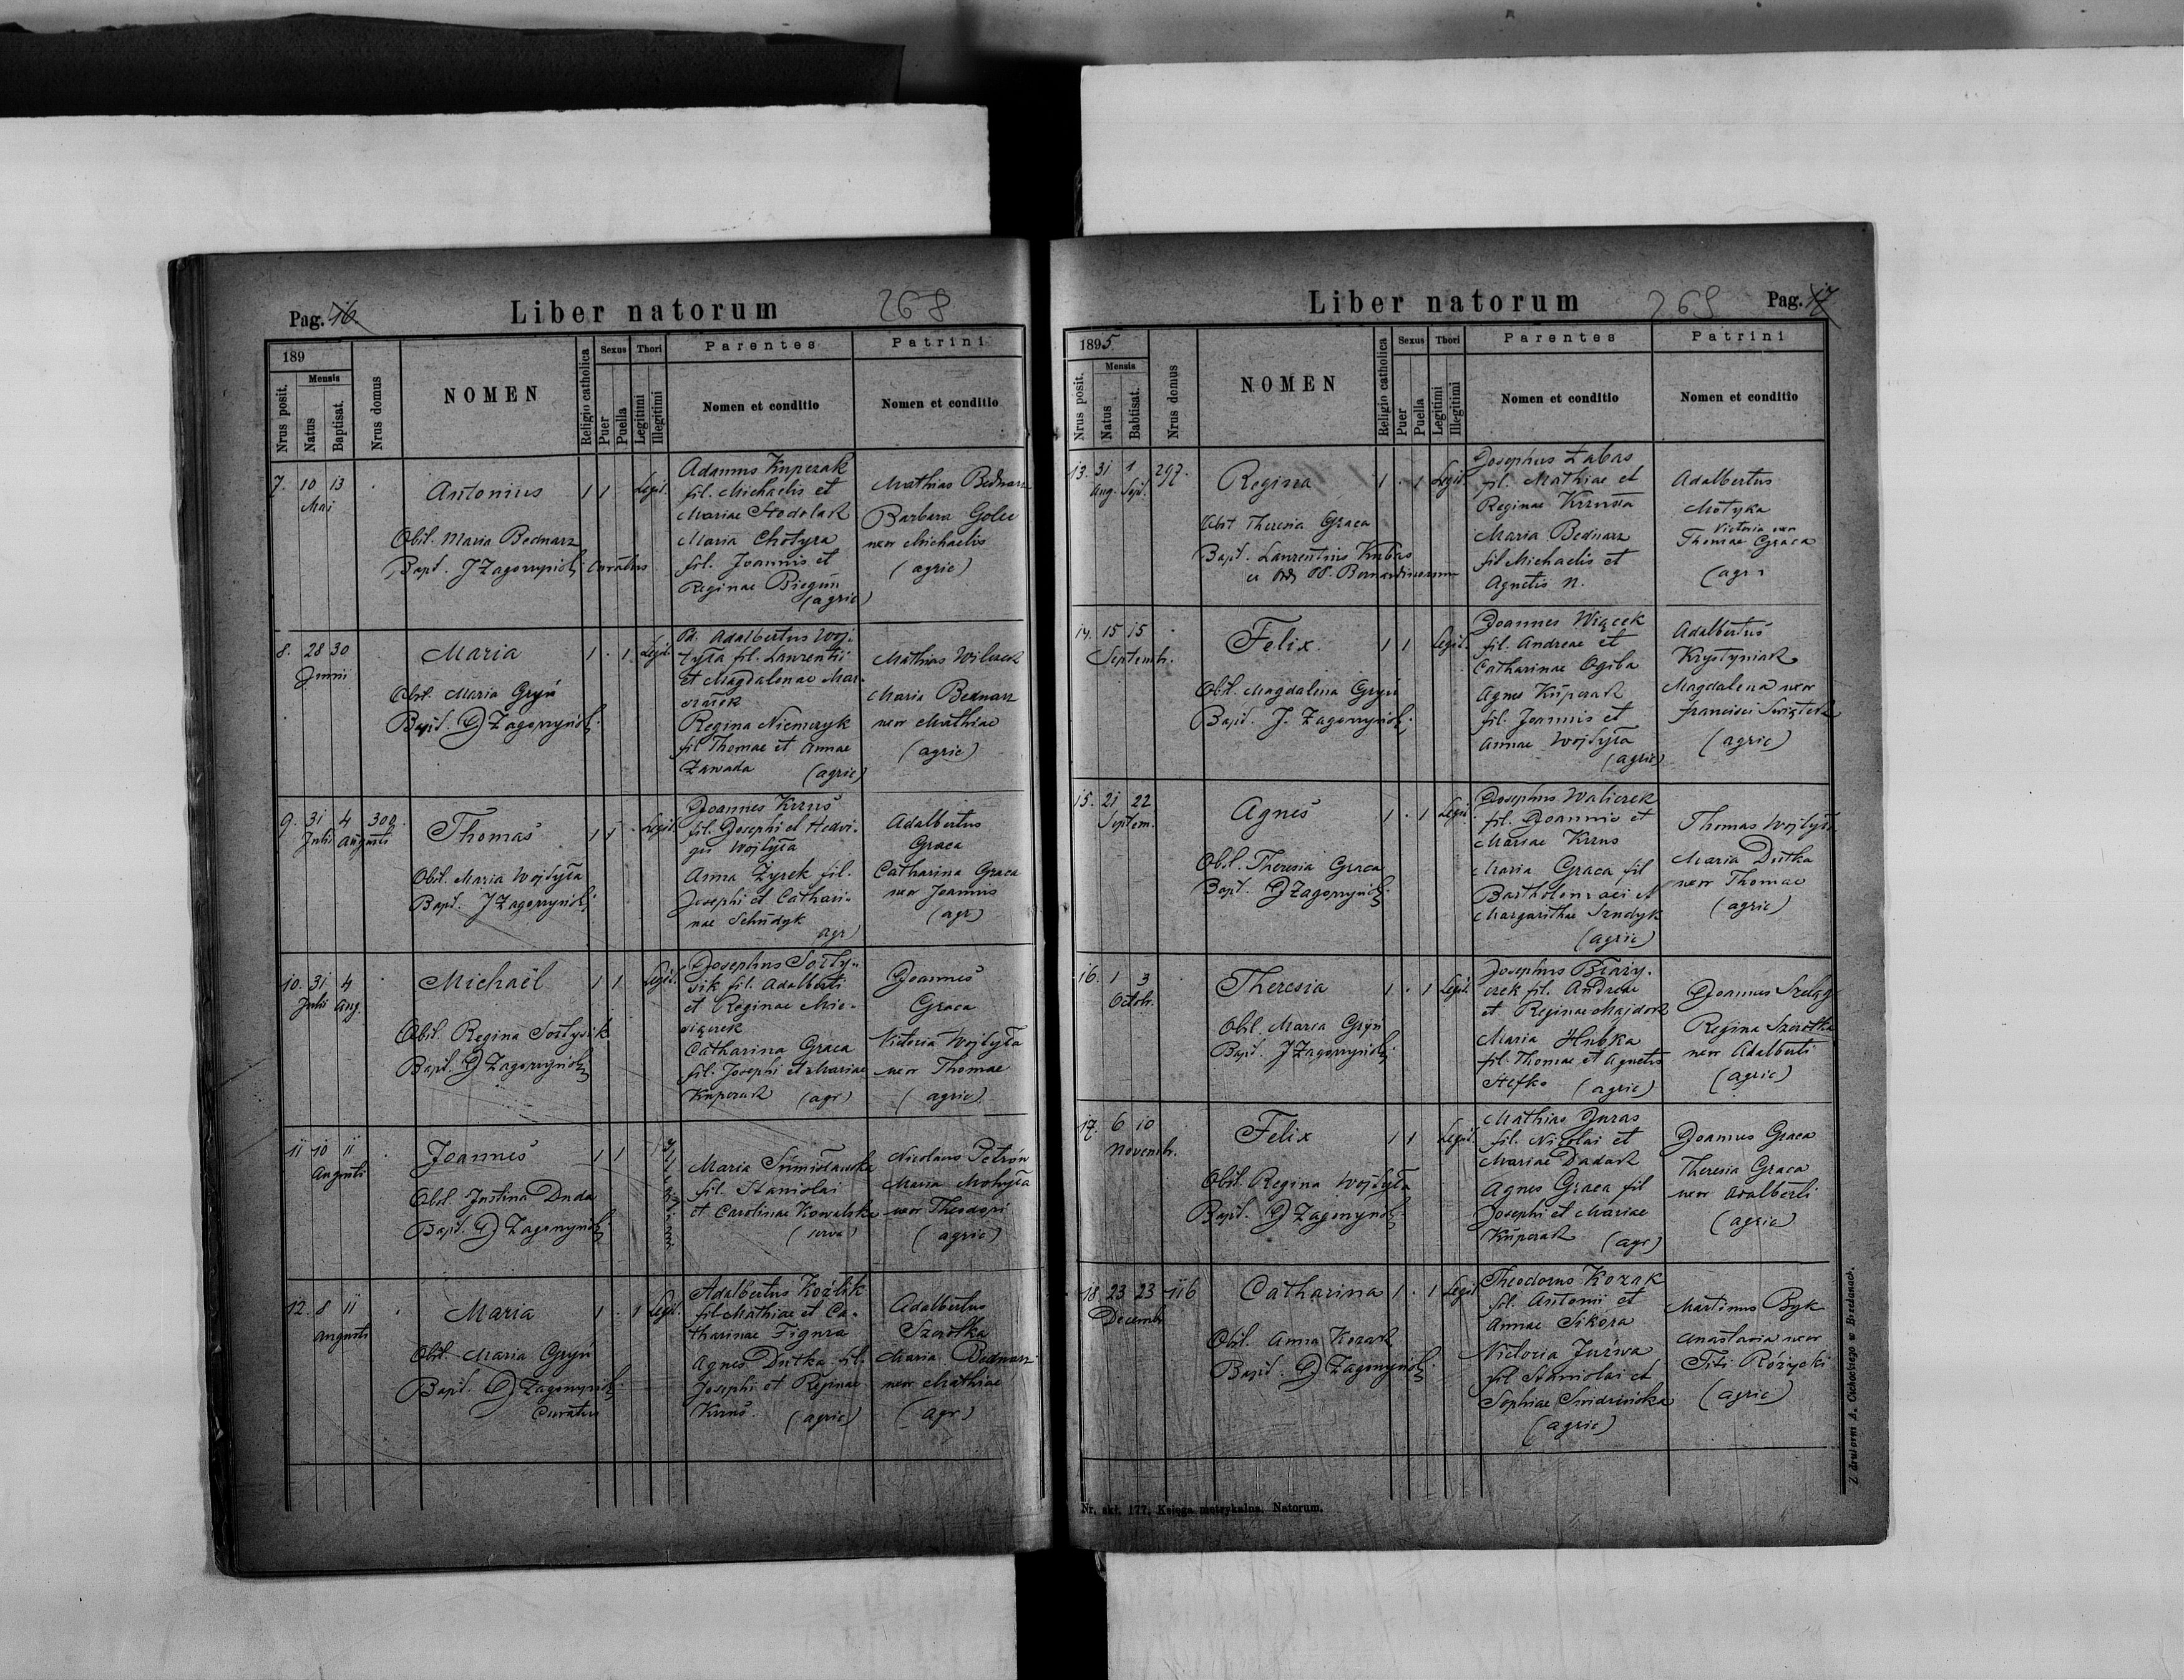 Pag. 16.
Liber natorum
268
189
Nrus posit.
Mensis
Natus
Baptisat.
Nrus domus
NOMEN
Religio catholica
Sexus
Puer
Puella
Thori
Legitimi
Illegitimi
Parentes
Nomen et conditio
Patrini
Nomen et conditio
7. 10 13
Mai
Antonius
1 1 Legit.
Obst. Maria Bednarz
Bapt. J Zagorzyński Curatus
Adamus Kupczak
fil. Michaelis et
Mariae Stodolak
Maria Chotyra
fil. Joannis et
Reginae Biegun
(agric)
Mathias Bednarz
Barbara Golec
uxor Michaelis
(agric)
8. 28 30
Junii
Maria
1 . 1 Legit.
Obst. Maria Gryń
Bapt. J Zagorzyński
Adalbertus Woj-
tyła fil. Laurentii
et Magdalenae Mar-
Regina Niemczyk
fil Thomae et Annae
Zawada (agric)
Mathias Wilczek
Maria Bednarz
uxor Mathiae
(agric)
9. 31 4 300.
Julii Augusti
Thomas
1 1 . Legit.
Obst. Maria Wojtyła
Bapt. J Zagorzyński
Joannes Kruś
fil. Josephi et Hedvi-
gis Wojtyła
Anna Żyrek fil.
Josephi et Cathari-
nae Schudyk
agr)
Adalbertus
Graca
Catharina Graca
uxor Joannis
(agr)
10. 31 4
Julii Aug.
Michaël
1 1 Legit.
Obst. Regina Sołtysik
Bapt. J Zagorzyński
Josephus Sołty-
sik fil. Adalberti
et Reginae Mie-
siączek
Catharina Graca
fil. Josephi et Mariae
Kupczak (agr)
Joannes
Graca
Victoria Wojtyła
uxor Thomae
(agric)
11 10 11
Augusti
Joannes
1 1
Obst. Justina Duda
Bapt. J Zagorzyński
Maria
fil. Stanislai
et Carolinae Kowalska
(serva)
Nicolaus Petrow
Maria Motyła
uxor Theodori
(agric)
12. 8 11
Augusti
Maria
1 . 1 Legit.
Obst. Maria Gryń
Bapt. J Zagorzyński
Curatus
Adalbertus Koźlik
fil Mathiae et Ca-
tharinae Figura
Agnes Dutka fil.
Josephi et Reginae
Kruś. (agric)
Adalbertus
Szerotka
Maria Bednarz
uxor Mathiae
(agr)
Liber natorum
269
Pag. 17
1895
Nrus posit.
Mensis
Natus
Babtisat.
Nrus domus
NOMEN
Religio catholica
Sexus
Puer
Puella
Thori
Legitimi
Illegitimi
Parentes
Nomen et conditio
Patrini
Nomen et conditio
13. 31 1 297.
Aug. Sept.
Regina
1 . 1 Legit.
Obst Theresia Graca
Bapt. Laurentius Kubas
ex Ord. PP. Bernardinorum
Josephus Łabas
fil. Mathiae et
Reginae
Maria Bednarz
fil Michaelis et
Agnetis N.
Adalbertus
Motyka
Victoria uxor
Thomae Graca
(agr)
14. 15 15
Septemb.
Felix
1 1 Legit.
Obst. Magdalena Gryń
Bapt. J. Zagorzyński
Joannes Wiącek
fil. Andreae et
Catharinae Ogila
Agnes Kupczak
fil. Joannis et
Annae Wojtyła
(agric)
Adalbertus
Krystyniak
Magdalena uxor
Francisci Swiątek
(agric)
15. 21 22
Septem.
Agnes
1 . 1 Legit.
Obst. Theresia Graca
Bapt. J Zagorzyński
Josephus Waliczek
fil. Joannis et
Mariae Krus
Maria Graca fil
Bartholomaei et
Margarithae Szudyk
(agric)
Thomas Wojtyła
Maria Dutka
uxor Thomae
(agric)
16. 1 3
Octob.
Theresia
1 . 1 Legit.
Obst. Maria Gryń
Bapt. J Zagorzyński
Josephus Błaży-
czek fil. Andreae
et Reginae Majdok
Maria Hubka
fil. Thomae et Agnetis
Stefko (agric)
Joannes Szeląg
Regina Szerotka
uxor Adalberti
(agric)
17. 6 10
Novemb.
Felix
1 1 Legit.
Obst. Regina Wojtyła
Bapt. J Zagorzyński
Mathias Juras
fil. Nicolai et
Mariae Dadak
Agnes Graca fil
Josephi et Mariae
Kupczak (agr)
Joannes Graca
Theresia Graca
uxor Adalberti
(agric)
18 23 23 116
Decemb
Catharina
1 . 1 Legit
Obst. Anna Kozak
Bapt. J Zagorzyński
Theodorus Kozak
fil. Antonii et
Annae Sikora
Victoria
fil Stanislai et
Sophiae
(agric)
Martinus Byk
Anastasia uxor
Titi Różycki
(agric)
Nr. skł. 177. Księga metrykalna. Natorum.
Z drukarni A. Cichockiego w Brzeżanach.